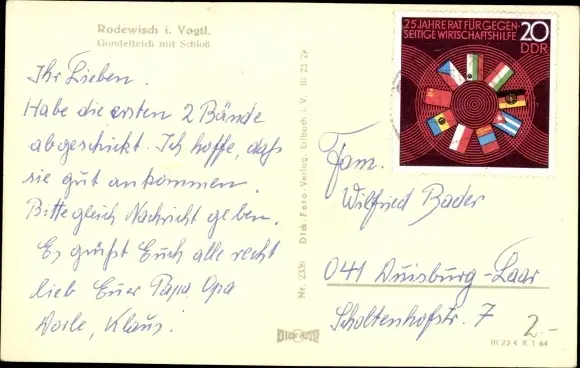 Rodewisch i. Vogtl.
Gondelteich mit Schloß
Ihr Lieben.
Habe die ersten 2 Bände
abgeschickt. Ich hoffe, daß
sie gut ankommen.
Bitte gleich Nachricht geben.
Es grüßt Euch alle recht
lieb Euer Papa Opa
Dorle, Klaus.
Nr. 2339 Dick-Foto-Verlag, Erlbach i. V. III 23 27
DICK FOTO
25 JAHRE RAT FÜR GEGEN-
SEITIGE WIRTSCHAFTSHILFE
20
DDR
Fam.
Wilfried Bader
041 Duisburg-Laar
Scholtenhofstr. 7
2.-
III 23 4 K 1 64